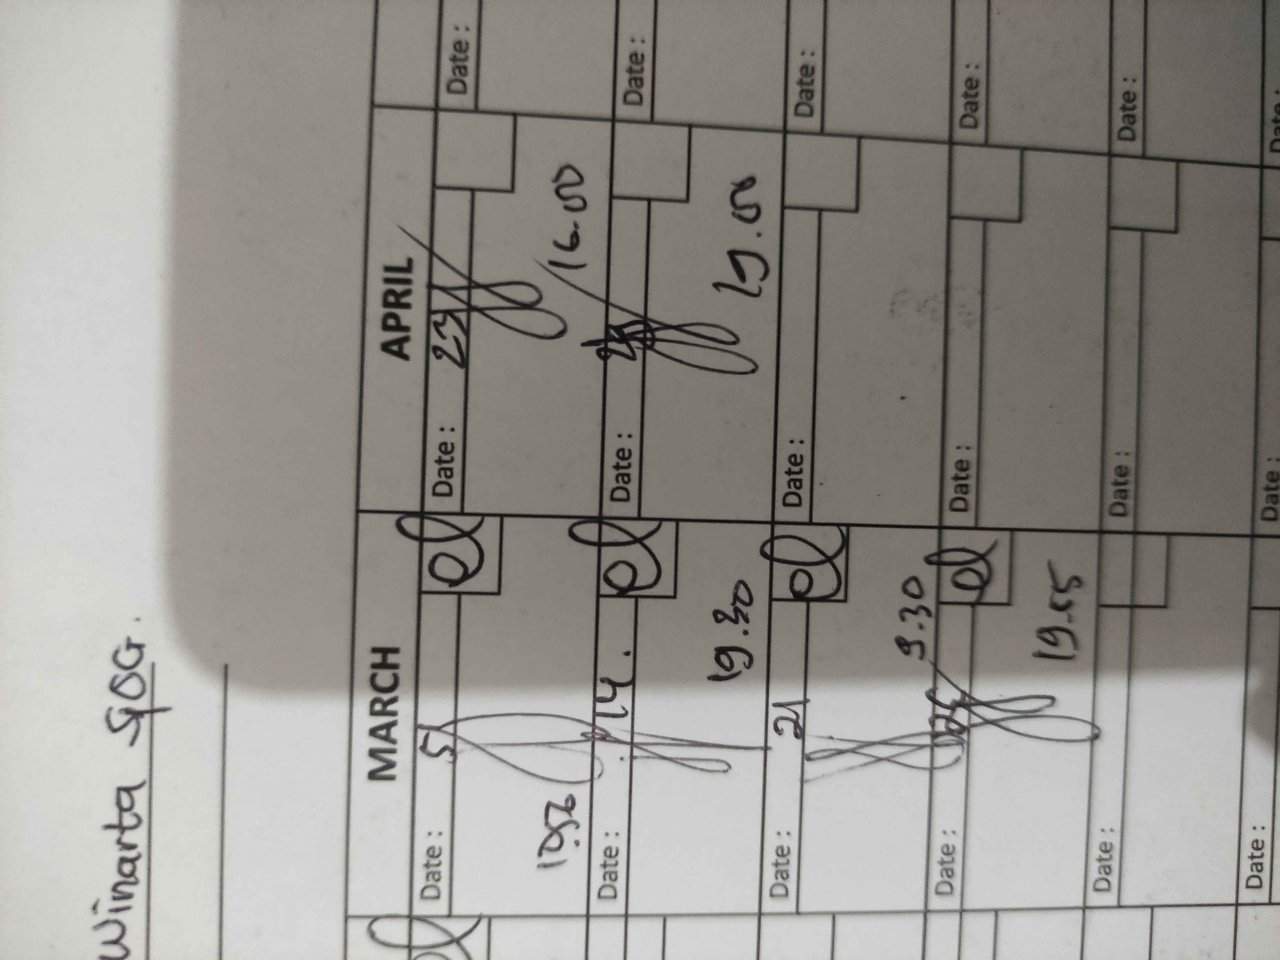 Winarta SpOG.
MARCH
APRIL
Date : 5
Date : 23
Date :
el
16.00
Date : 14.
Date :
Date :
el
19.30
19.00
Date : 21
Date :
Date :
el
9.30
Date : 25
Date :
Date :
el
19.55
Date :
Date :
Date :
Date :
Date :
Date :